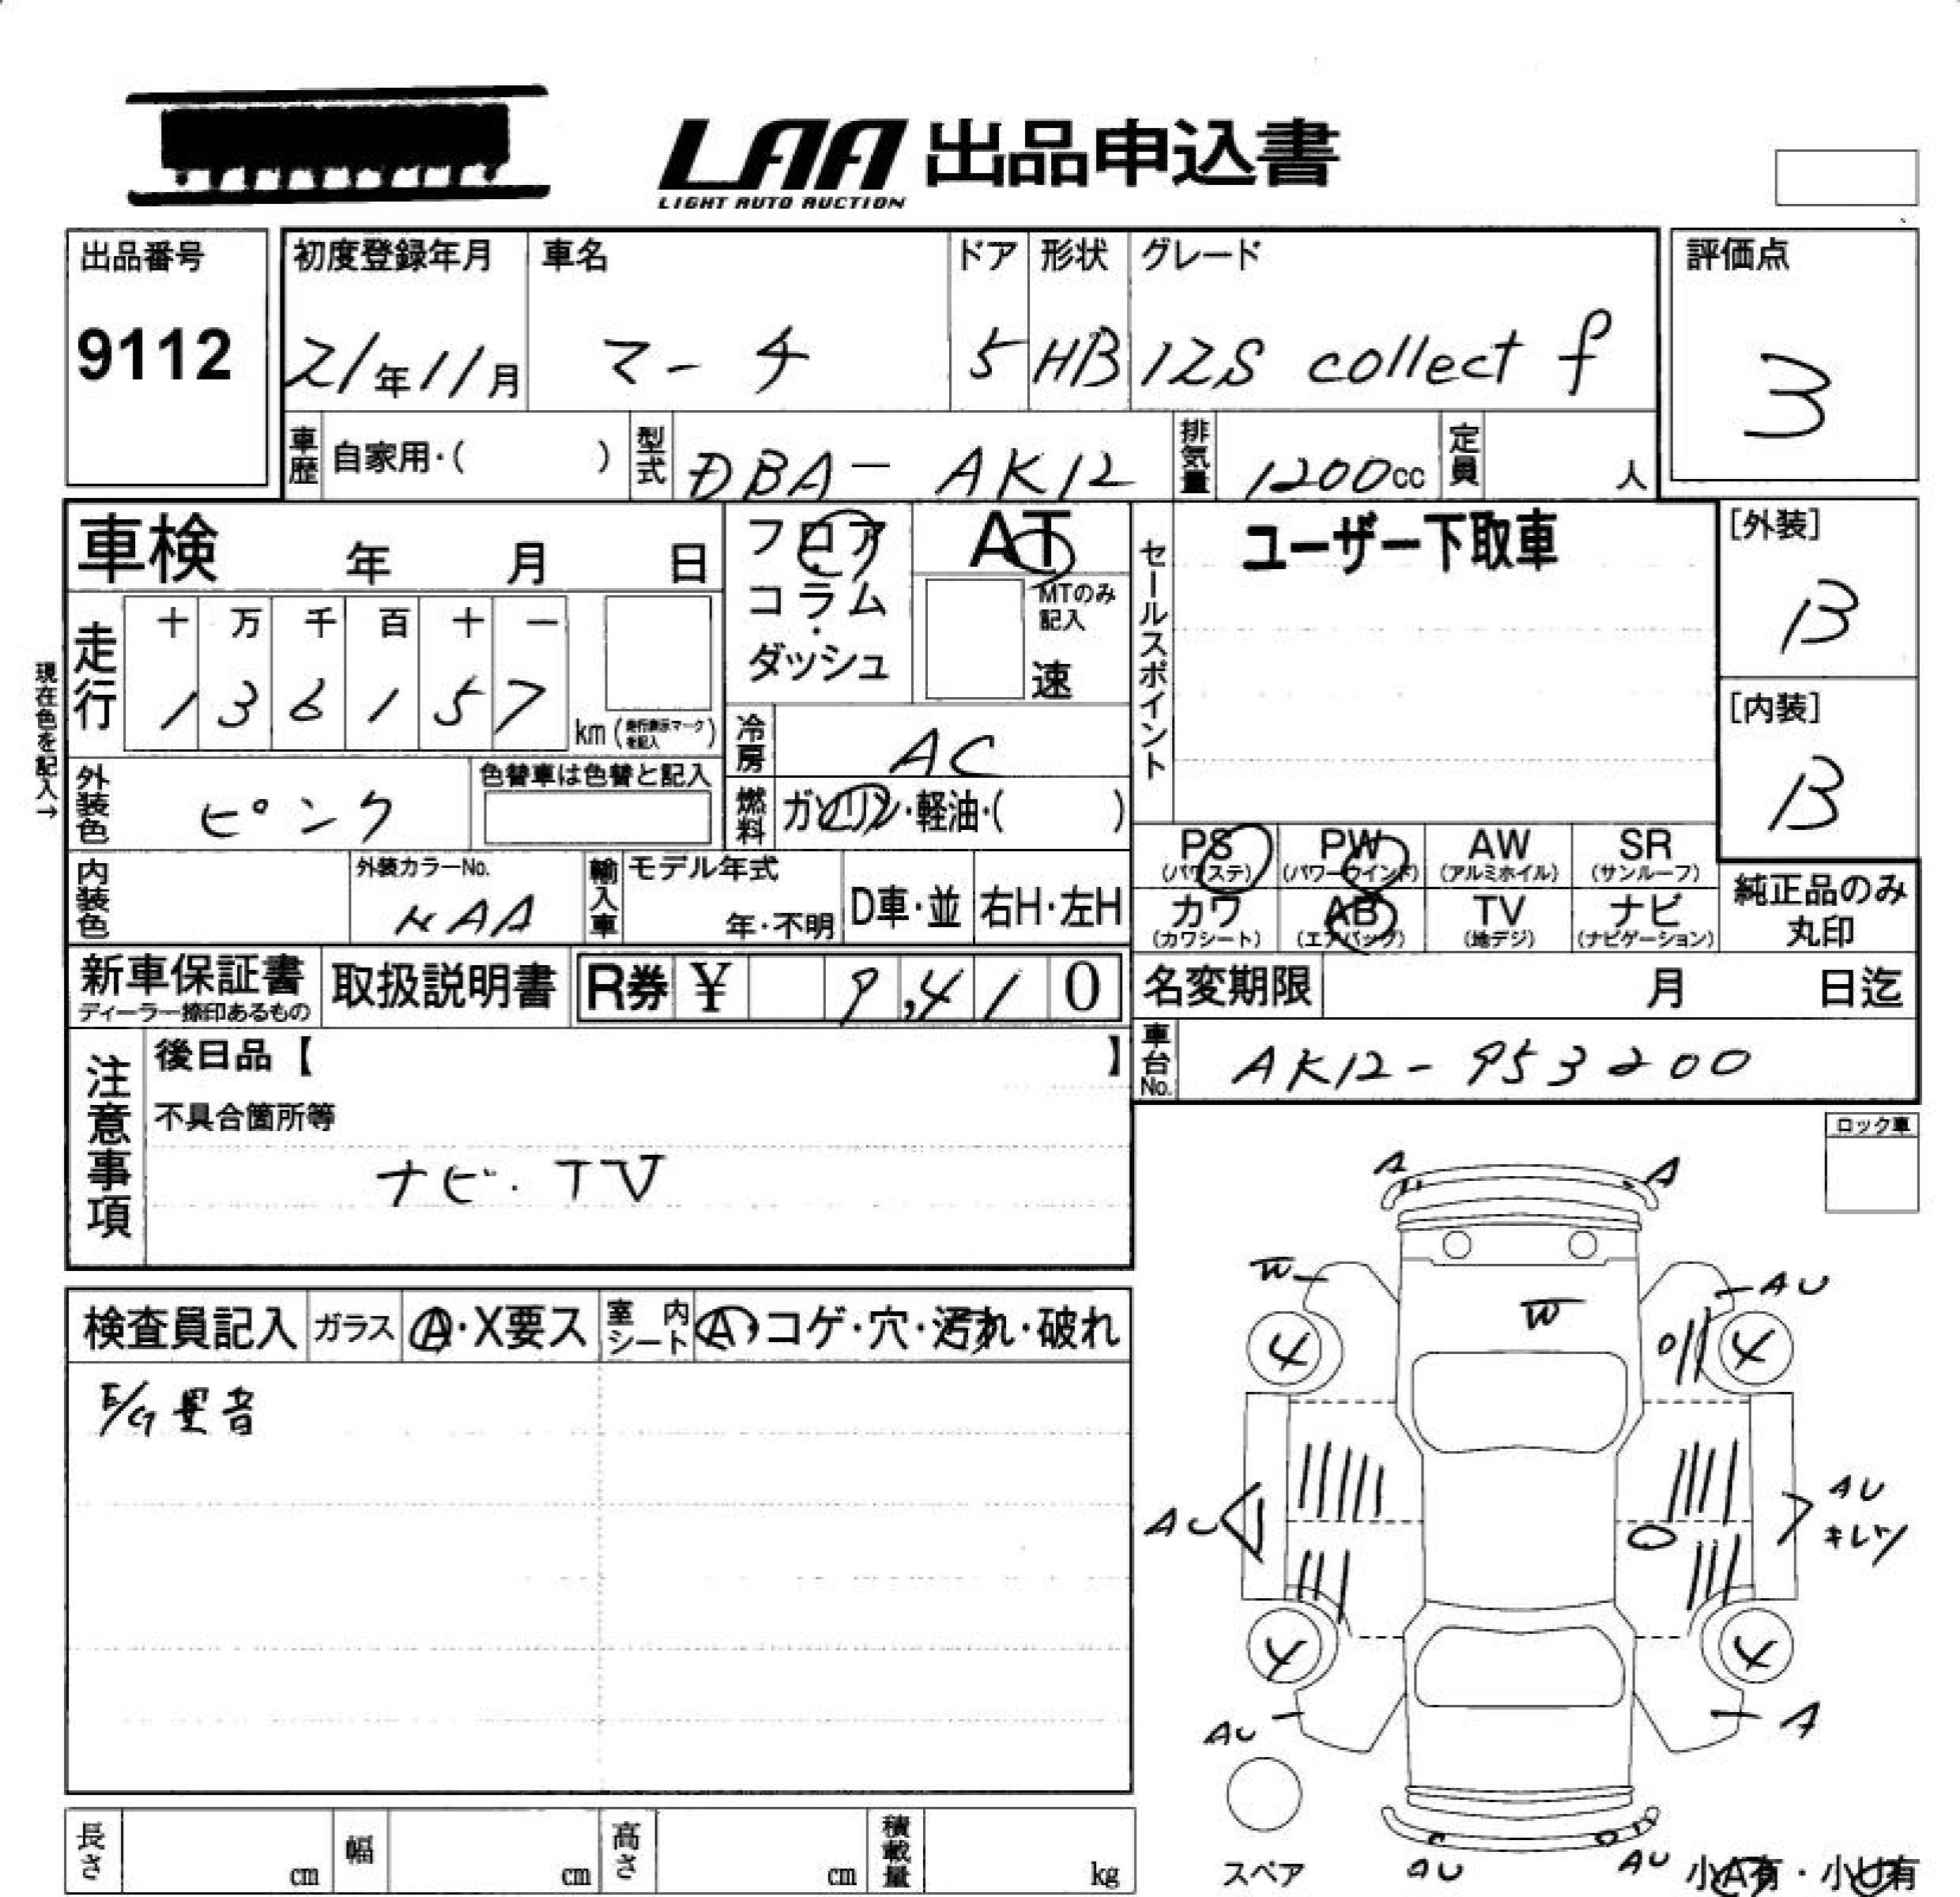 LAA 出品申込書
LIGHT AUTO AUCTION
出品番号
9112
初度登録年月
21年11月
車名
マーチ
ドア
5
形状
HB
グレード
12S collect f
評価点
3
車歴
自家用・( )
型式
DBA-AK12
排気量
1200cc
定員
人
車検 年 月 日
フロア・コラム・ダッシュ
AT
MTのみ記入
速
セールスポイント
ユーザー下取車
[外装]
B
[内装]
B
現在色を記入→
走行
十 万 千 百 十 一
1 3 6 1 5 7
km (走行表示マークを記入)
冷房
AC
外装色
ピンク
色替車は色替と記入
燃料
ガソリン・軽油・( )
PS (パワステ)
PW (パワーウインド)
AW (アルミホイル)
SR (サンルーフ)
内装色
外装カラーNo.
NAA
輸入車
モデル年式
年・不明
D車・並
右H・左H
カワ (カワシート)
AB (エアバッグ)
TV (地デジ)
ナビ (ナビゲーション)
純正品のみ丸印
新車保証書
ディーラー捺印あるもの
取扱説明書
R券 ¥ 9,410
名変期限 月 日迄
注意事項
後日品【 】
車台No.
AK12-953200
不具合箇所等
ナビ・TV
ロック車
検査員記入
ガラス
A・X要ス
室内シート
A・コゲ・穴・汚れ・破れ
E/G 異音
A
A
W
W
AU
4
4
AU
AU
キレツ
4
4
AU
A
スペア
AU
AU
小A有・小U有
長さ cm
幅 cm
高さ cm
積載量 kg